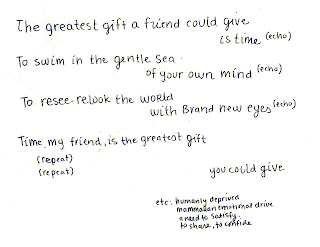 The greatest gift a friend could give
is time (echo)
To swim in the gentle sea
of your own mind (echo)
To resee-relook the world
with Brand new eyes (echo)
Time, my friend, is the greatest gift
(repeat)
(repeat)
you could give
etc: humanly deprived
mammalian emotional drive
a need to satisfy.
to share, to confide